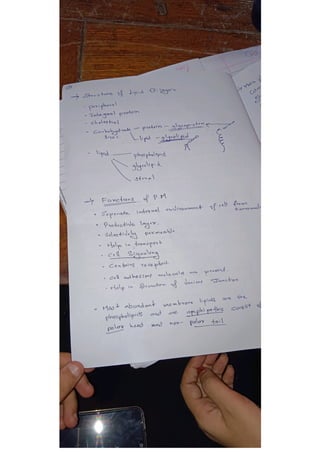 → Structure of Lipid
- peripheral
- Integral protein
- cholestrol
- Carbohydrate — protein - glycoprotein
lipid - glycolipid
- lipid — phospholipid
glycolipid
sterol
→ Functions of P.M
• Separate internal environment of cell from
• Protective layer
• Selectively permeable
• Help in transport
• Cell Signaling
• Contains receptors
• Cell adhesion molecule are present
• Help in formation of various Junction
• Most abundant membrane lipids are the
phospholipids and are amphipathic consist of
polar head and non-polar tail